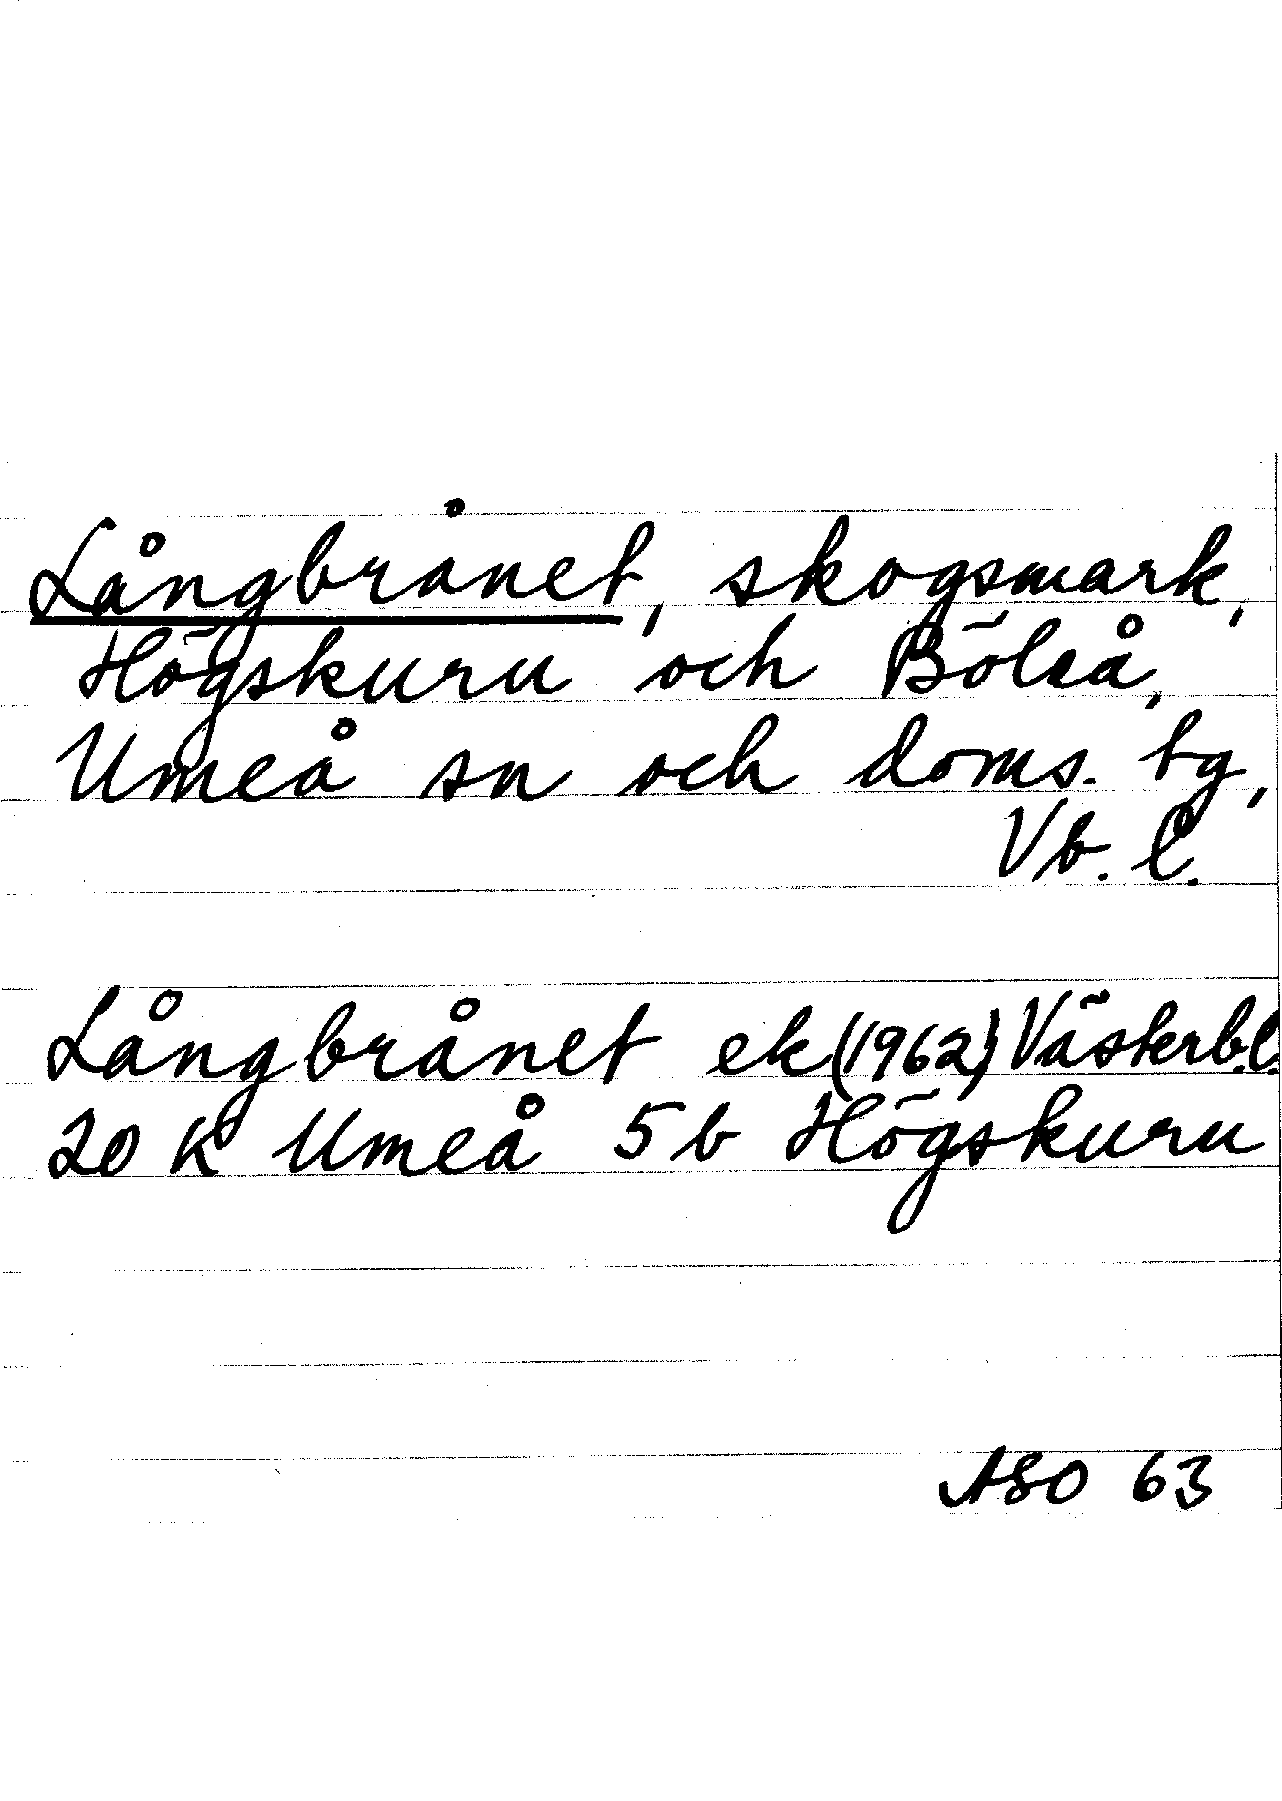 Långbrånet, skogsmark,
Högskuru och Böleå,
Umeå sn och doms. tg,
Vb. l.
Långbrånet ek (1962) Västerb.l.
20 K Umeå 5b Högskuru
ASO 63